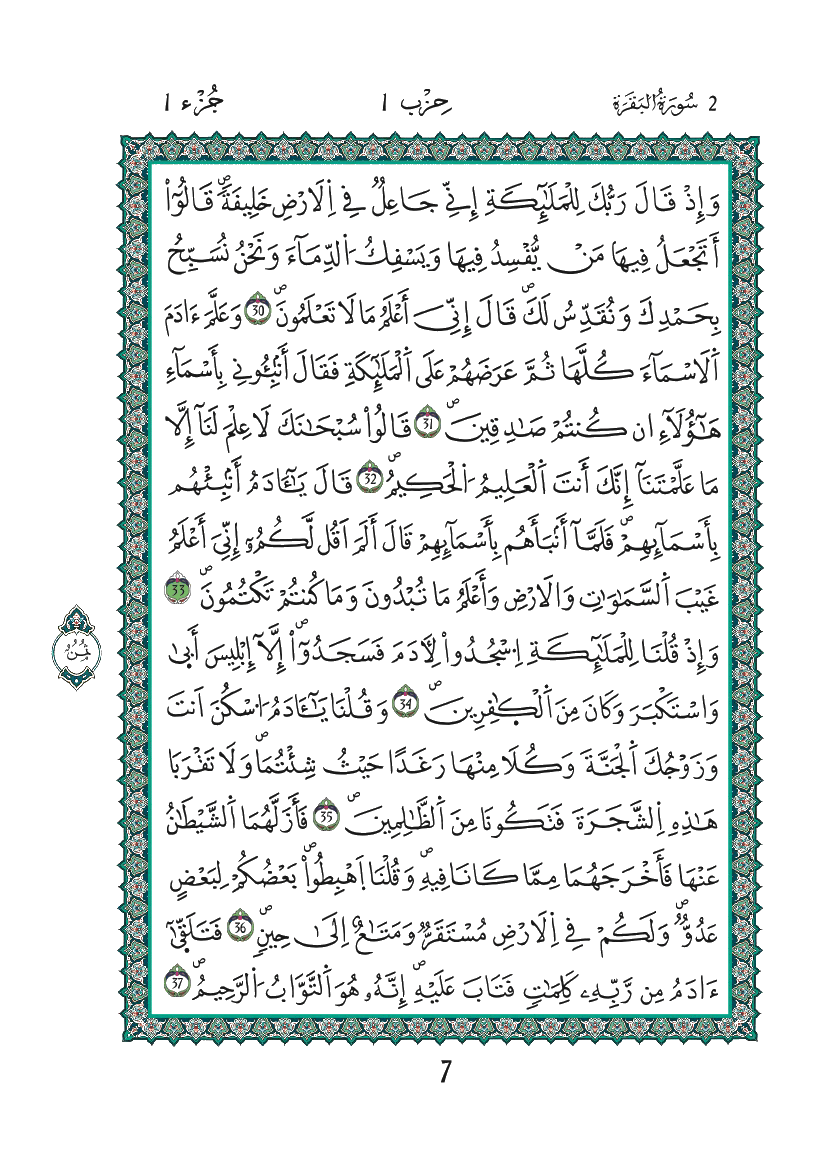 2 سُورَةُ الْبَقَرَةِ حِزْب 1 جُزْء 1
وَإِذْ قَالَ رَبُّكَ لِلْمَلَٰٓئِكَةِ إِنِّے جَاعِلٌ فِے اِ۬لَارْضِ خَلِيفَةٗۖ قَالُوٓاْ
أَتَجْعَلُ فِيهَا مَنْ يُّفْسِدُ فِيهَا وَيَسْفِكُ اُ۬لدِّمَآءَ وَنَحْنُ نُسَبِّحُ
بِحَمْدِكَ وَنُقَدِّسُ لَكَۖ قَالَ إِنِّيَ أَعْلَمُ مَا لَا تَعْلَمُونَۖ 30 وَعَلَّمَ ءَادَمَ
اَ۬لَاسْمَآءَ كُلَّهَا ثُمَّ عَرَضَهُمْ عَلَى اَ۬لْمَلَٰٓئِكَةِ فَقَالَ أَنۢبِـُٔونِے بِأَسْمَآءِ
هَٰٓؤُلَآءِ ان كُنتُمْ صَٰدِقِينَۖ 31 قَالُواْ سُبْحَٰنَكَ لَا عِلْمَ لَنَآ إِلَّا
مَا عَلَّمْتَنَآ إِنَّكَ أَنتَ اَ۬لْعَلِيمُ اُ۬لْحَكِيمُۖ 32 قَالَ يَٰٓـَٔادَمُ أَنۢبِئْهُم
بِأَسْمَآئِهِمْۖ فَلَمَّآ أَنۢبَأَهُم بِأَسْمَآئِهِمْ قَالَ أَلَمَ اَقُل لَّكُمُۥٓ إِنِّيَ أَعْلَمُ
غَيْبَ اَ۬لسَّمَٰوَٰتِ وَالَارْضِ وَأَعْلَمُ مَا تُبْدُونَ وَمَا كُنتُمْ تَكْتُمُونَۖ 33
وَإِذْ قُلْنَا لِلْمَلَٰٓئِكَةِ اِ۟سْجُدُواْ لِأٓدَمَ فَسَجَدُوٓاْۖ إِلَّآ إِبْلِيسَ أَبٜىٰ
وَاسْتَكْبَرَ وَكَانَ مِنَ اَ۬لْكٰٜفِرِينَۖ 34 وَقُلْنَا يَٰٓـَٔادَمُ اُ۟سْكُنَ اَنتَ
وَزَوْجُكَ اَ۬لْجَنَّةَ وَكُلَا مِنْهَا رَغَداً حَيْثُ شِئْتُمَاۖ وَلَا تَقْرَبَا
هَٰذِهِ اِ۬لشَّجَرَةَ فَتَكُونَا مِنَ اَ۬لظَّٰلِمِينَۖ 35 فَأَزَلَّهُمَا اَ۬لشَّيْطَٰنُ
عَنْهَا فَأَخْرَجَهُمَا مِمَّا كَانَا فِيهِۖ وَقُلْنَا اَ۪هْبِطُواْۖ بَعْضُكُمْ لِبَعْضٍ
عَدُوّٞۖ وَلَكُمْ فِے اِ۬لَارْضِ مُسْتَقَرّٞ وَمَتَٰعٌ إِلَىٰ حِينٖۖ 36 فَتَلَقّٜىٰٓ
ءَادَمُ مِن رَّبِّهِۦ كَلِمَٰتٖ فَتَابَ عَلَيْهِۖ إِنَّهُۥ هُوَ اَ۬لتَّوَّابُ اُ۬لرَّحِيمُۖ 37
ثُمُنُ
7